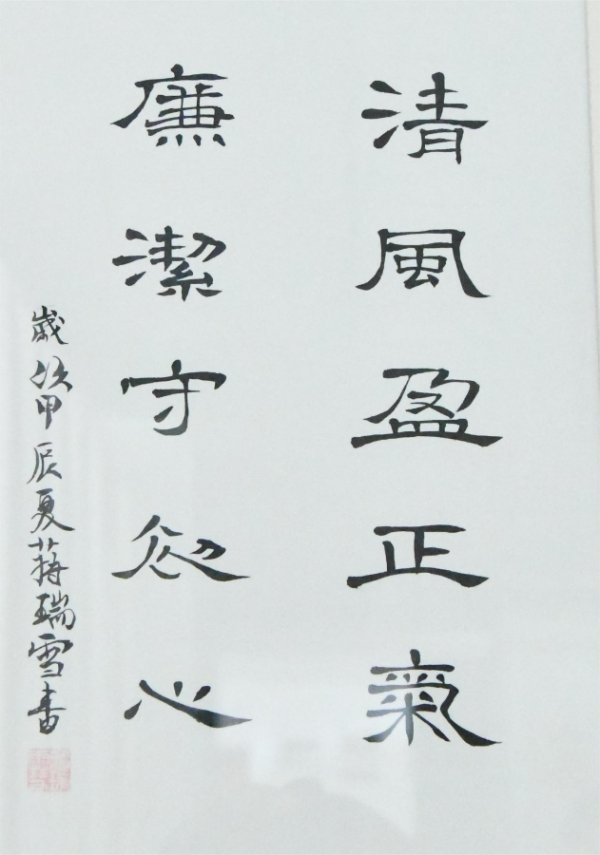 清風盈正氣
廉潔守初心
歲次甲辰夏蔣瑞雪書